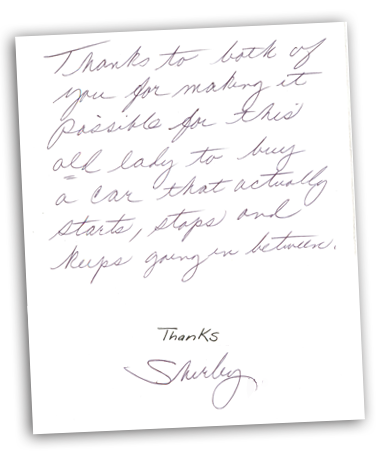 Thanks to both of
you for making it
possible for this
old lady to buy
a car that actually
starts, stops and
keeps going in between.
Thanks
Shirley